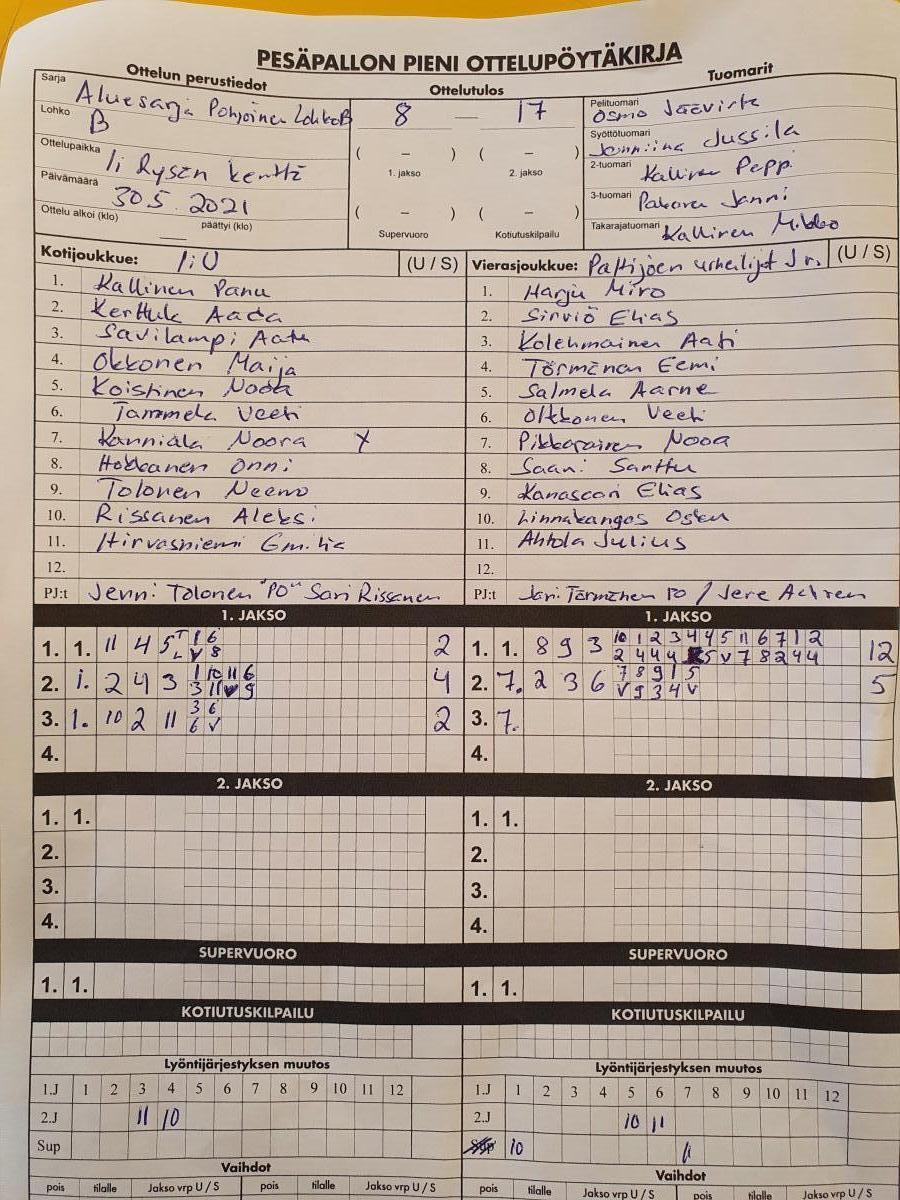 PESÄPALLON PIENI OTTELUPÖYTÄKIRJA
Ottelun perustiedot
Ottelutulos
Tuomarit
Sarja Aluesarja Pohjoinen LohkoB
8 — 17
Pelituomari Osmo
Lohko B
Syöttötuomari Jussila
( – ) ( – )
1. jakso 2. jakso
Ottelupaikka Ii Rysän kenttä
2-tuomari Kallinen
Päivämäärä 30.5.2021
3-tuomari Janni
( – ) ( – )
Ottelu alkoi (klo) päättyi (klo)
Supervuoro Kotiutuskilpailu
Takarajatuomari Kallinen Mikko
Kotijoukkue: IiU (U / S)
Vierasjoukkue: Pattijoen urheilijat Jr. (U / S)
1. Kallinen Panu
1. Harju Miro
2. Kerttula Aada
2. Sirviö Elias
3. Savilampi Aatu
3. Kolehmainen Aati
4. Okkonen Maija
4. Törmänen Eemi
5. Koistinen Nooa
5. Salmela Aarne
6. Tammela Veeti
6. Oltkonen Veeti
7. Kanniala Noora X
7. Pikkarainen Nooa
8. Hokkanen Onni
8. Saari Santtu
9. Tolonen Neemo
9. Elias
10. Rissanen Aleksi
10. Linnakangas
11. Hirvasniemi Emilia
11. Ahtola Julius
12.
12.
PJ:t Jenni Tolonen "PO" Sari Rissanen
PJ:t Jari Törmänen PO / Jere
1. JAKSO
1. JAKSO
1. 1. 11 4 5 T 1 6 2
L V 8
1. 1. 8 9 3 10 1 2 3 4 4 5 11 6 7 1 2 12
2 4 4 4 5 V 7 8 2 4 4
2. 1. 2 4 3 1 10 11 6 4
3 11 V 9
2. 7. 2 3 6 7 8 9 1 5 5
V 9 3 4 V
3. 1. 10 2 11 3 6 2
6 V
3. 7.
4.
4.
2. JAKSO
2. JAKSO
1. 1.
1. 1.
2.
2.
3.
3.
4.
4.
SUPERVUORO
SUPERVUORO
1. 1.
1. 1.
KOTIUTUSKILPAILU
KOTIUTUSKILPAILU
Lyöntijärjestyksen muutos
Lyöntijärjestyksen muutos
1.J 1 2 3 4 5 6 7 8 9 10 11 12
1.J 1 2 3 4 5 6 7 8 9 10 11 12
2.J 11 10
2.J 10 11
Sup
Sup 10
Vaihdot
Vaihdot
pois tilalle Jakso vrp U / S pois tilalle Jakso vrp U / S
pois tilalle Jakso vrp U / S pois tilalle Jakso vrp U / S